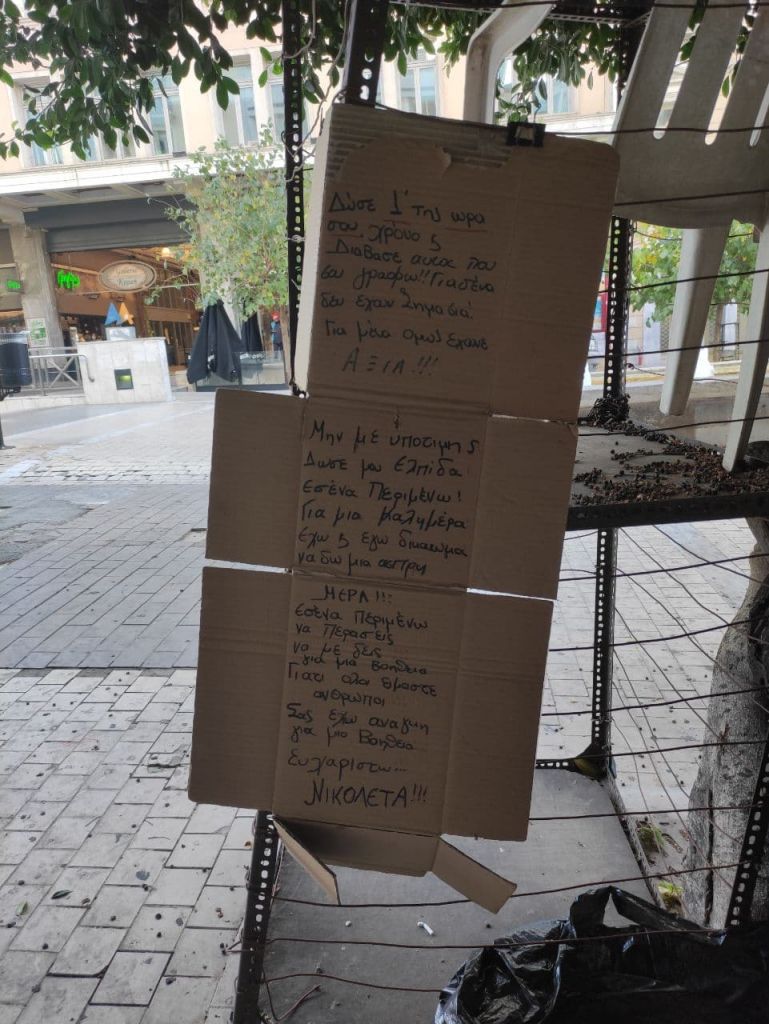 Δώσε 1' της ωρα
σου χρόνο ς
Διαβασε αυτος που
σου γραφω!! Για σένα
δεν έχαν Σημασιά!
Για μένα ομως έχουνε
ΑΞΙΑ!!!
Μην με υποτιμης
Δωσε μου Ελπίδα
Εσένα Περιμένω!
Για μια Καλημέρα
έχω ς εγω δικαιωμα
να δω μια ασπρη
ΜΕΡΑ!!!
Εσένα Περιμένω
να Περασεις
να με δεις
για μια βοηθεια
Γιατι ολοι είμαστε
ανθρωποι
Σας έχω αναγκη
για μια Βοηθεια
Ευχαριστω...
ΝΙΚΟΛΕΤΑ!!!